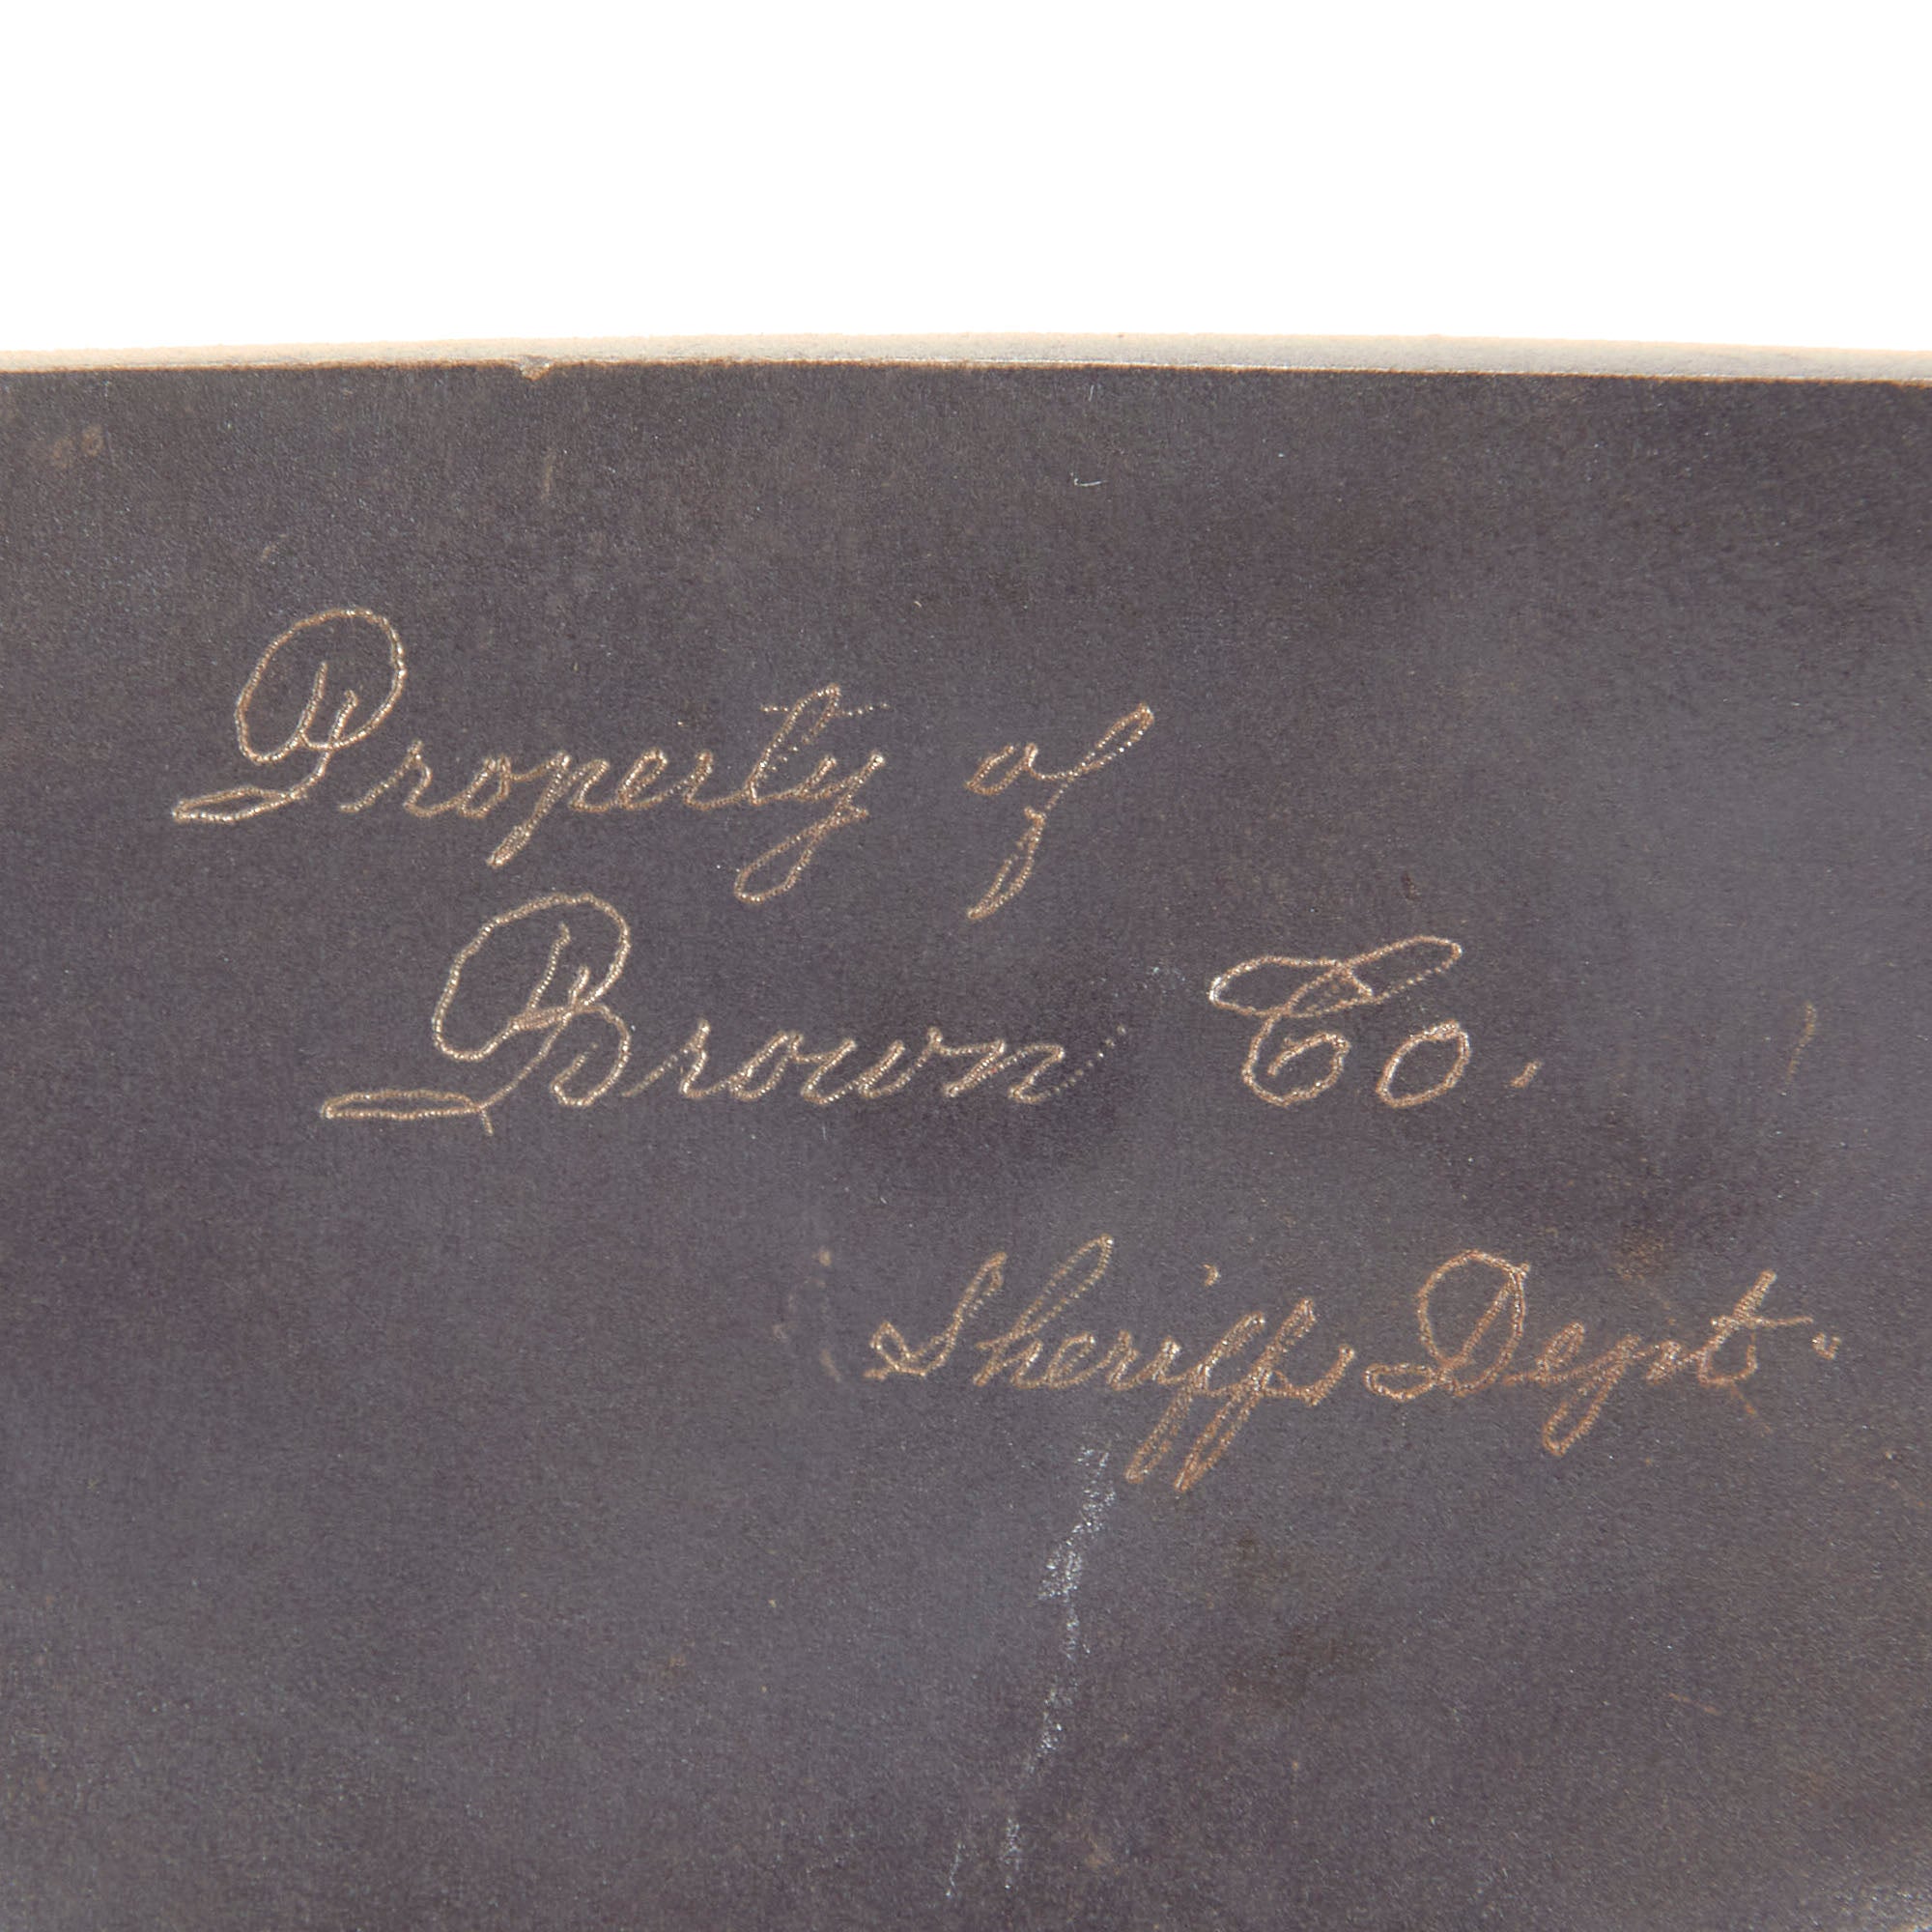 Property of
Brown Co.
Sheriffs Dept.